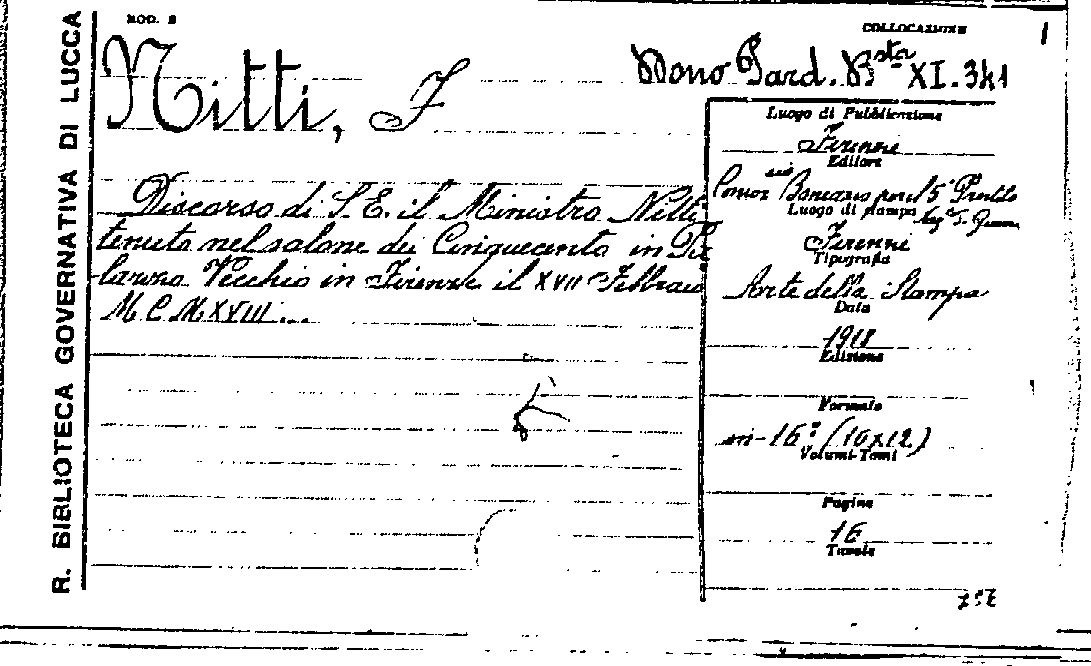 R. BIBLIOTECA GOVERNATIVA DI LUCCA
MOD. B
COLLOCAZIONE
1
Nitti, F
Dono Gard. Bsta XI. 341
Discorso di S. E. il Ministro Nitti
tenuto nel salone dei Cinquecento in Pa
lazzo Vecchio in Firenze il XVII Febbraio
M C M XVIII...
Luogo di Pubblicazione
Firenze
Editore
Bancario per il 5° Prestito
Luogo di stampa
Firenze
Tipografia
Arte della Stampa
Data
1918
Edizione
Formato
in-16° (16x12)
Volumi-Tomi
Pagine
16
Tavole